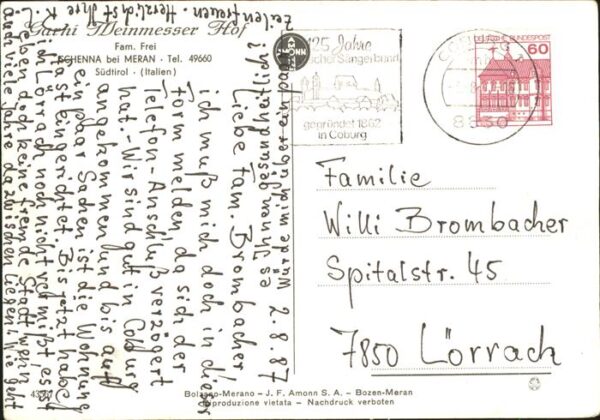 Garni Weinmesser Hof
Fam. Frei
SCHENNA bei MERAN - Tel. 49660
Südtirol - (Italien)
125 Jahre
Sängerbund
gegründet 1862
in Coburg
DEUTSCHE BUNDESPOST
60
8630
Familie
Willi Brombacher
Spitalstr. 45
7850 Lörrach
2.8.87
Liebe Fam. Brombacher!
ich muß mich doch in dieser
Form melden, da sich der
Telefon-Anschluß verzögert
hat. - Wir sind gut in Coburg
angekommen und bis auf
ein paar Sachen ist die Wohnung
fast eingerichtet. Bis jetzt habe
ich Lörrach noch nicht vermißt, es ist
eben doch keine fremde Stadt, wenn
auch viele Jahre dazwischen liegen. Wie geht
Würde mich über ein paar
Zeilen freuen. Herzlichst Ihre
Bolzano-Merano - J. F. Amonn S. A. - Bozen-Meran
Riproduzione vietata - Nachdruck verboten